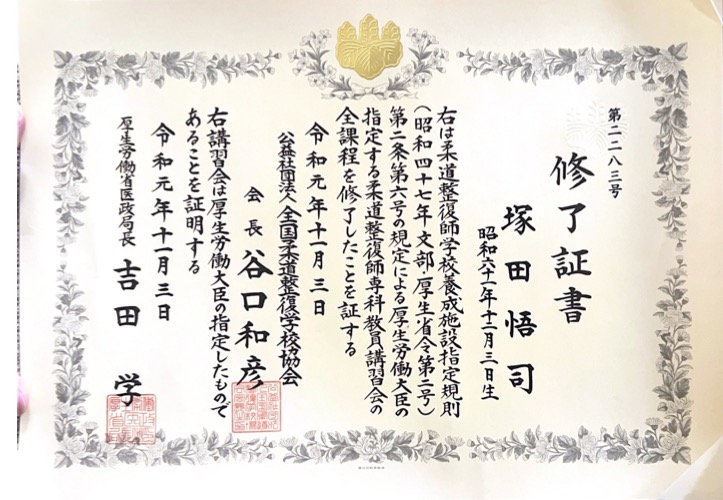 第二二八三号
修了証書
塚田悟司
昭和六十一年十二月三日生
右は柔道整復師学校養成施設指定規則
(昭和四十七年文部・厚生省令第二号)
第二条第六号の規定による厚生労働大臣の
指定する柔道整復師専科教員講習会の
全課程を修了したことを証する
令和元年十一月三日
公益社団法人全国柔道整復学校協会
会長 谷口和彦
右講習会は厚生労働大臣の指定したもので
あることを証明する
令和元年十一月三日
厚生労働省医政局長 吉田 学